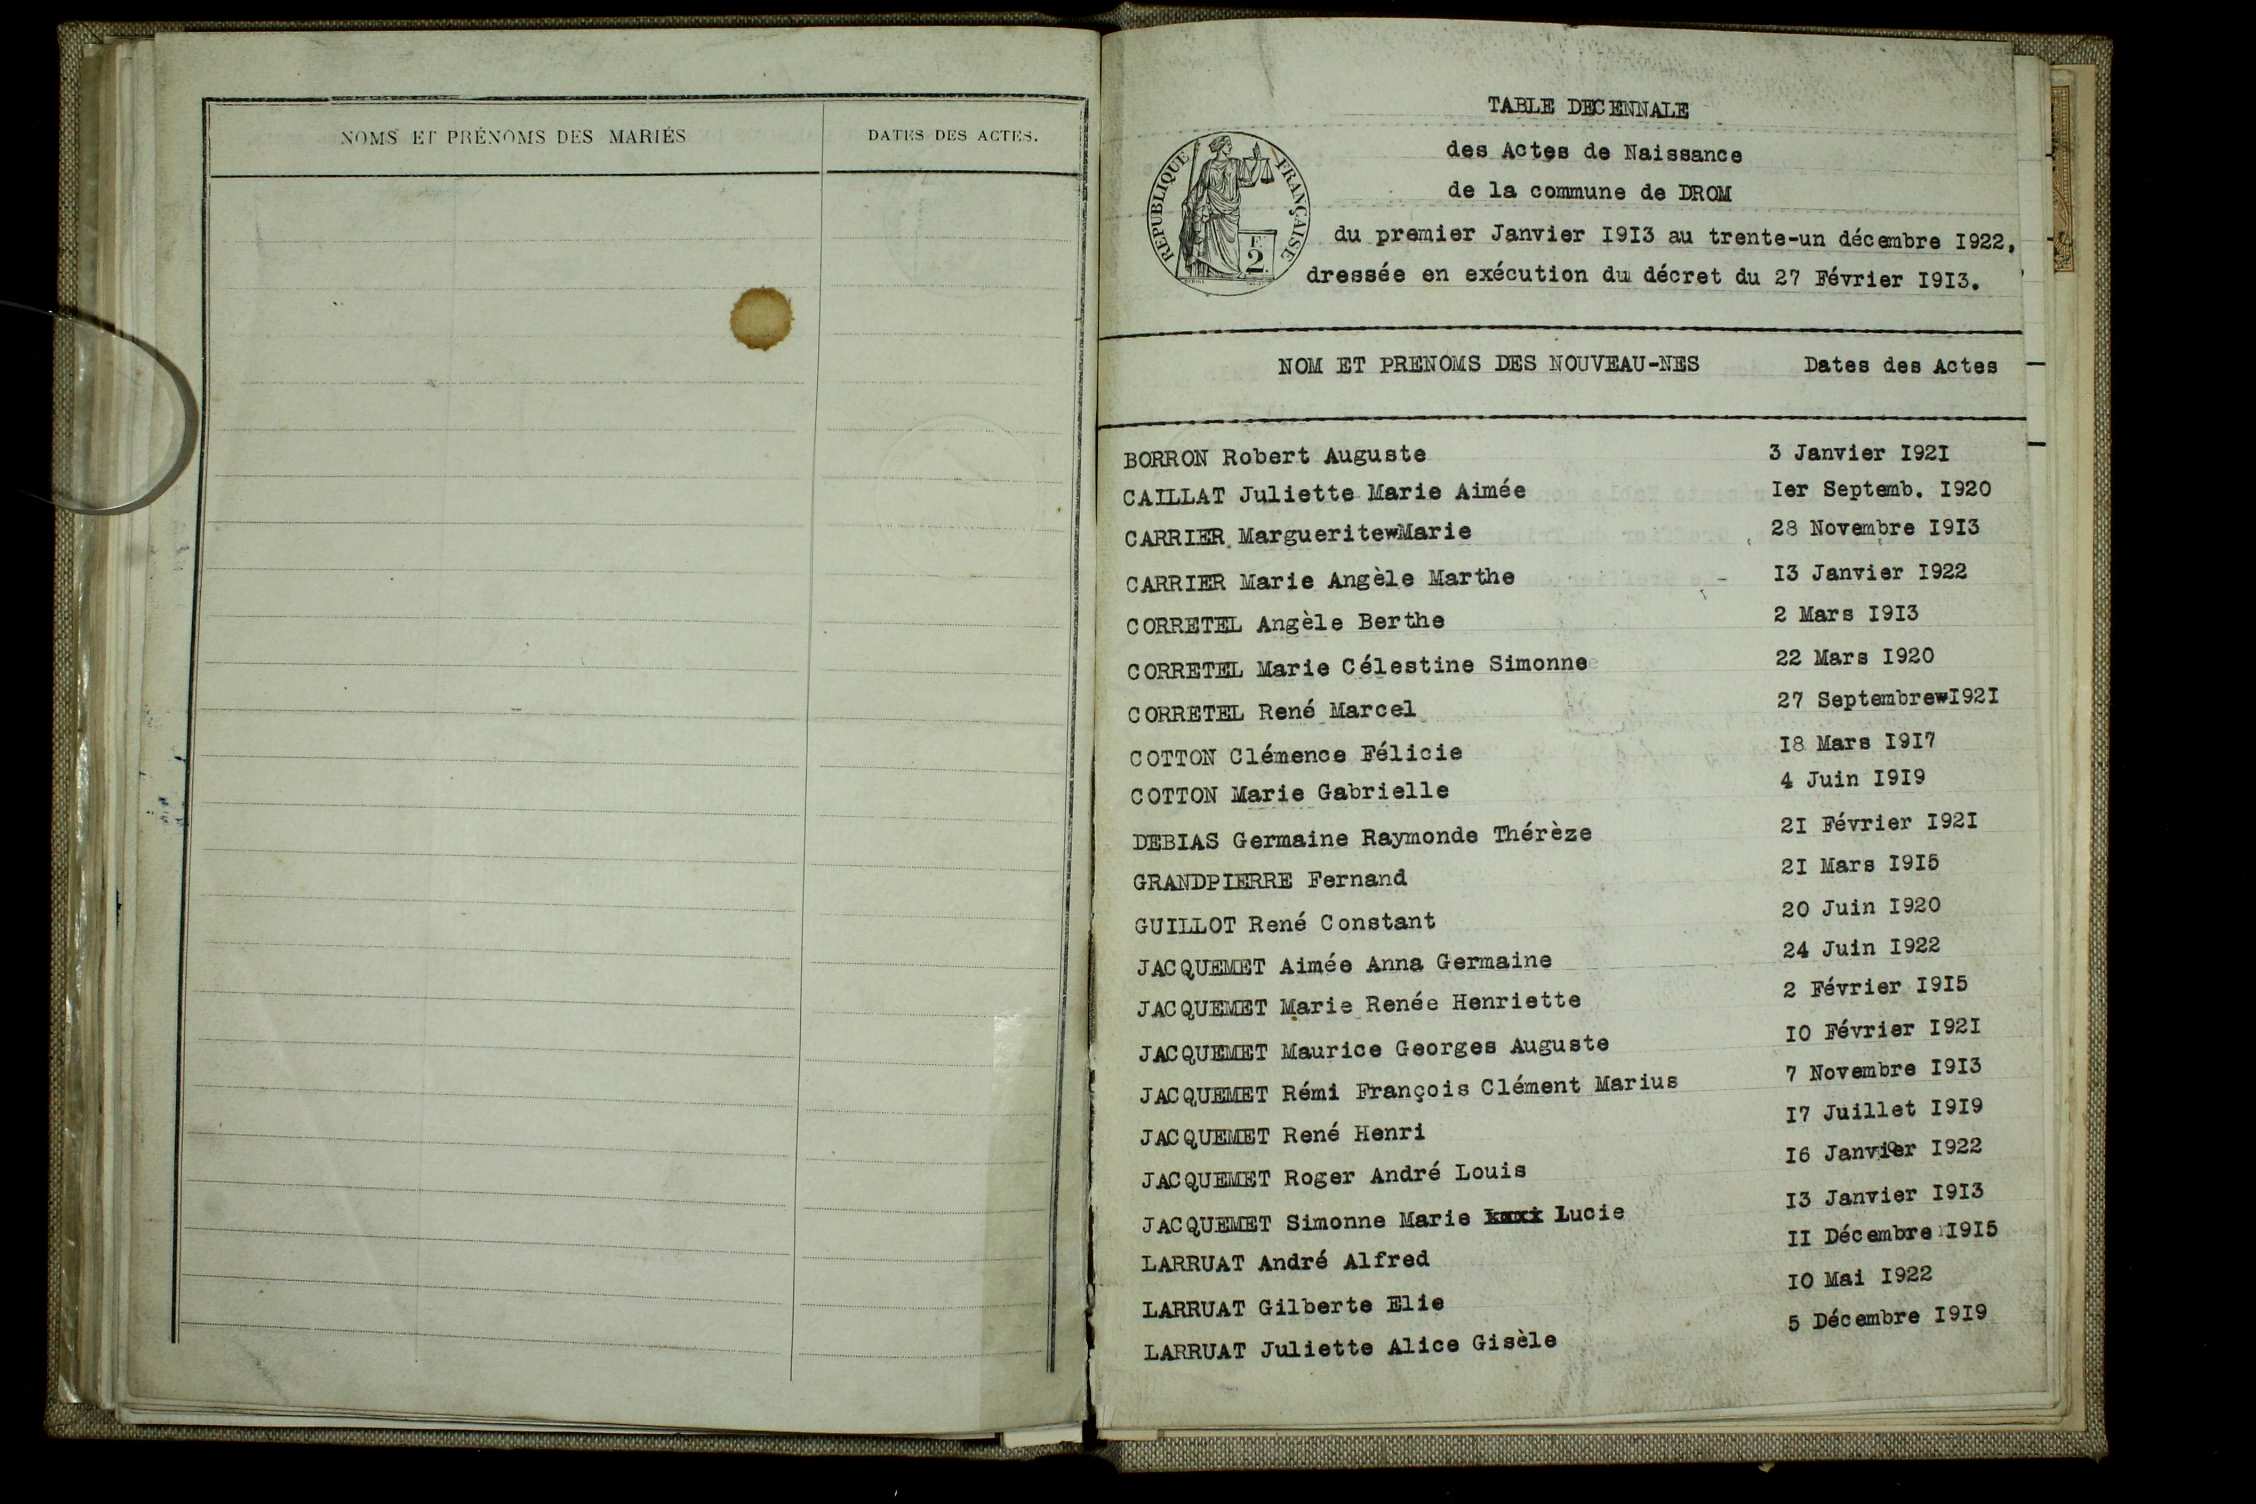 NOMS ET PRÉNOMS DES MARIÉS
DATES DES ACTES.
TABLE DECENNALE
des Actes de Naissance
de la commune de DROM
du premier Janvier I9I3 au trente-un décembre I922,
dressée en exécution du décret du 27 Février I9I3.
RÉPUBLIQUE FRANÇAISE
F.
2.
NOM ET PRENOMS DES NOUVEAU-NES Dates des Actes
BORRON Robert Auguste 3 Janvier I92I
CAILLAT Juliette Marie Aimée Ier Septemb. I920
CARRIER MargueritewMarie 28 Novembre I9I3
CARRIER Marie Angèle Marthe - I3 Janvier I922
CORRETEL Angèle Berthe 2 Mars I9I3
CORRETEL Marie Célestine Simonne 22 Mars I920
CORRETEL René Marcel 27 SeptembrewI92I
COTTON Clémence Félicie I8 Mars I9I7
COTTON Marie Gabrielle 4 Juin I9I9
DEBIAS Germaine Raymonde Thérèze 2I Février I92I
GRANDPIERRE Fernand 2I Mars I9I5
GUILLOT René Constant 20 Juin I920
JACQUEMET Aimée Anna Germaine 24 Juin I922
JACQUEMET Marie Renée Henriette 2 Février I9I5
JACQUEMET Maurice Georges Auguste IO Février I92I
JACQUEMET Rémi François Clément Marius 7 Novembre I9I3
JACQUEMET René Henri I7 Juillet I9I9
JACQUEMET Roger André Louis I6 Janvier I922
JACQUEMET Simonne Marie Lucie I3 Janvier I9I3
LARRUAT André Alfred II Décembre I9I5
LARRUAT Gilberte Elie IO Mai I922
LARRUAT Juliette Alice Gisèle 5 Décembre I9I9